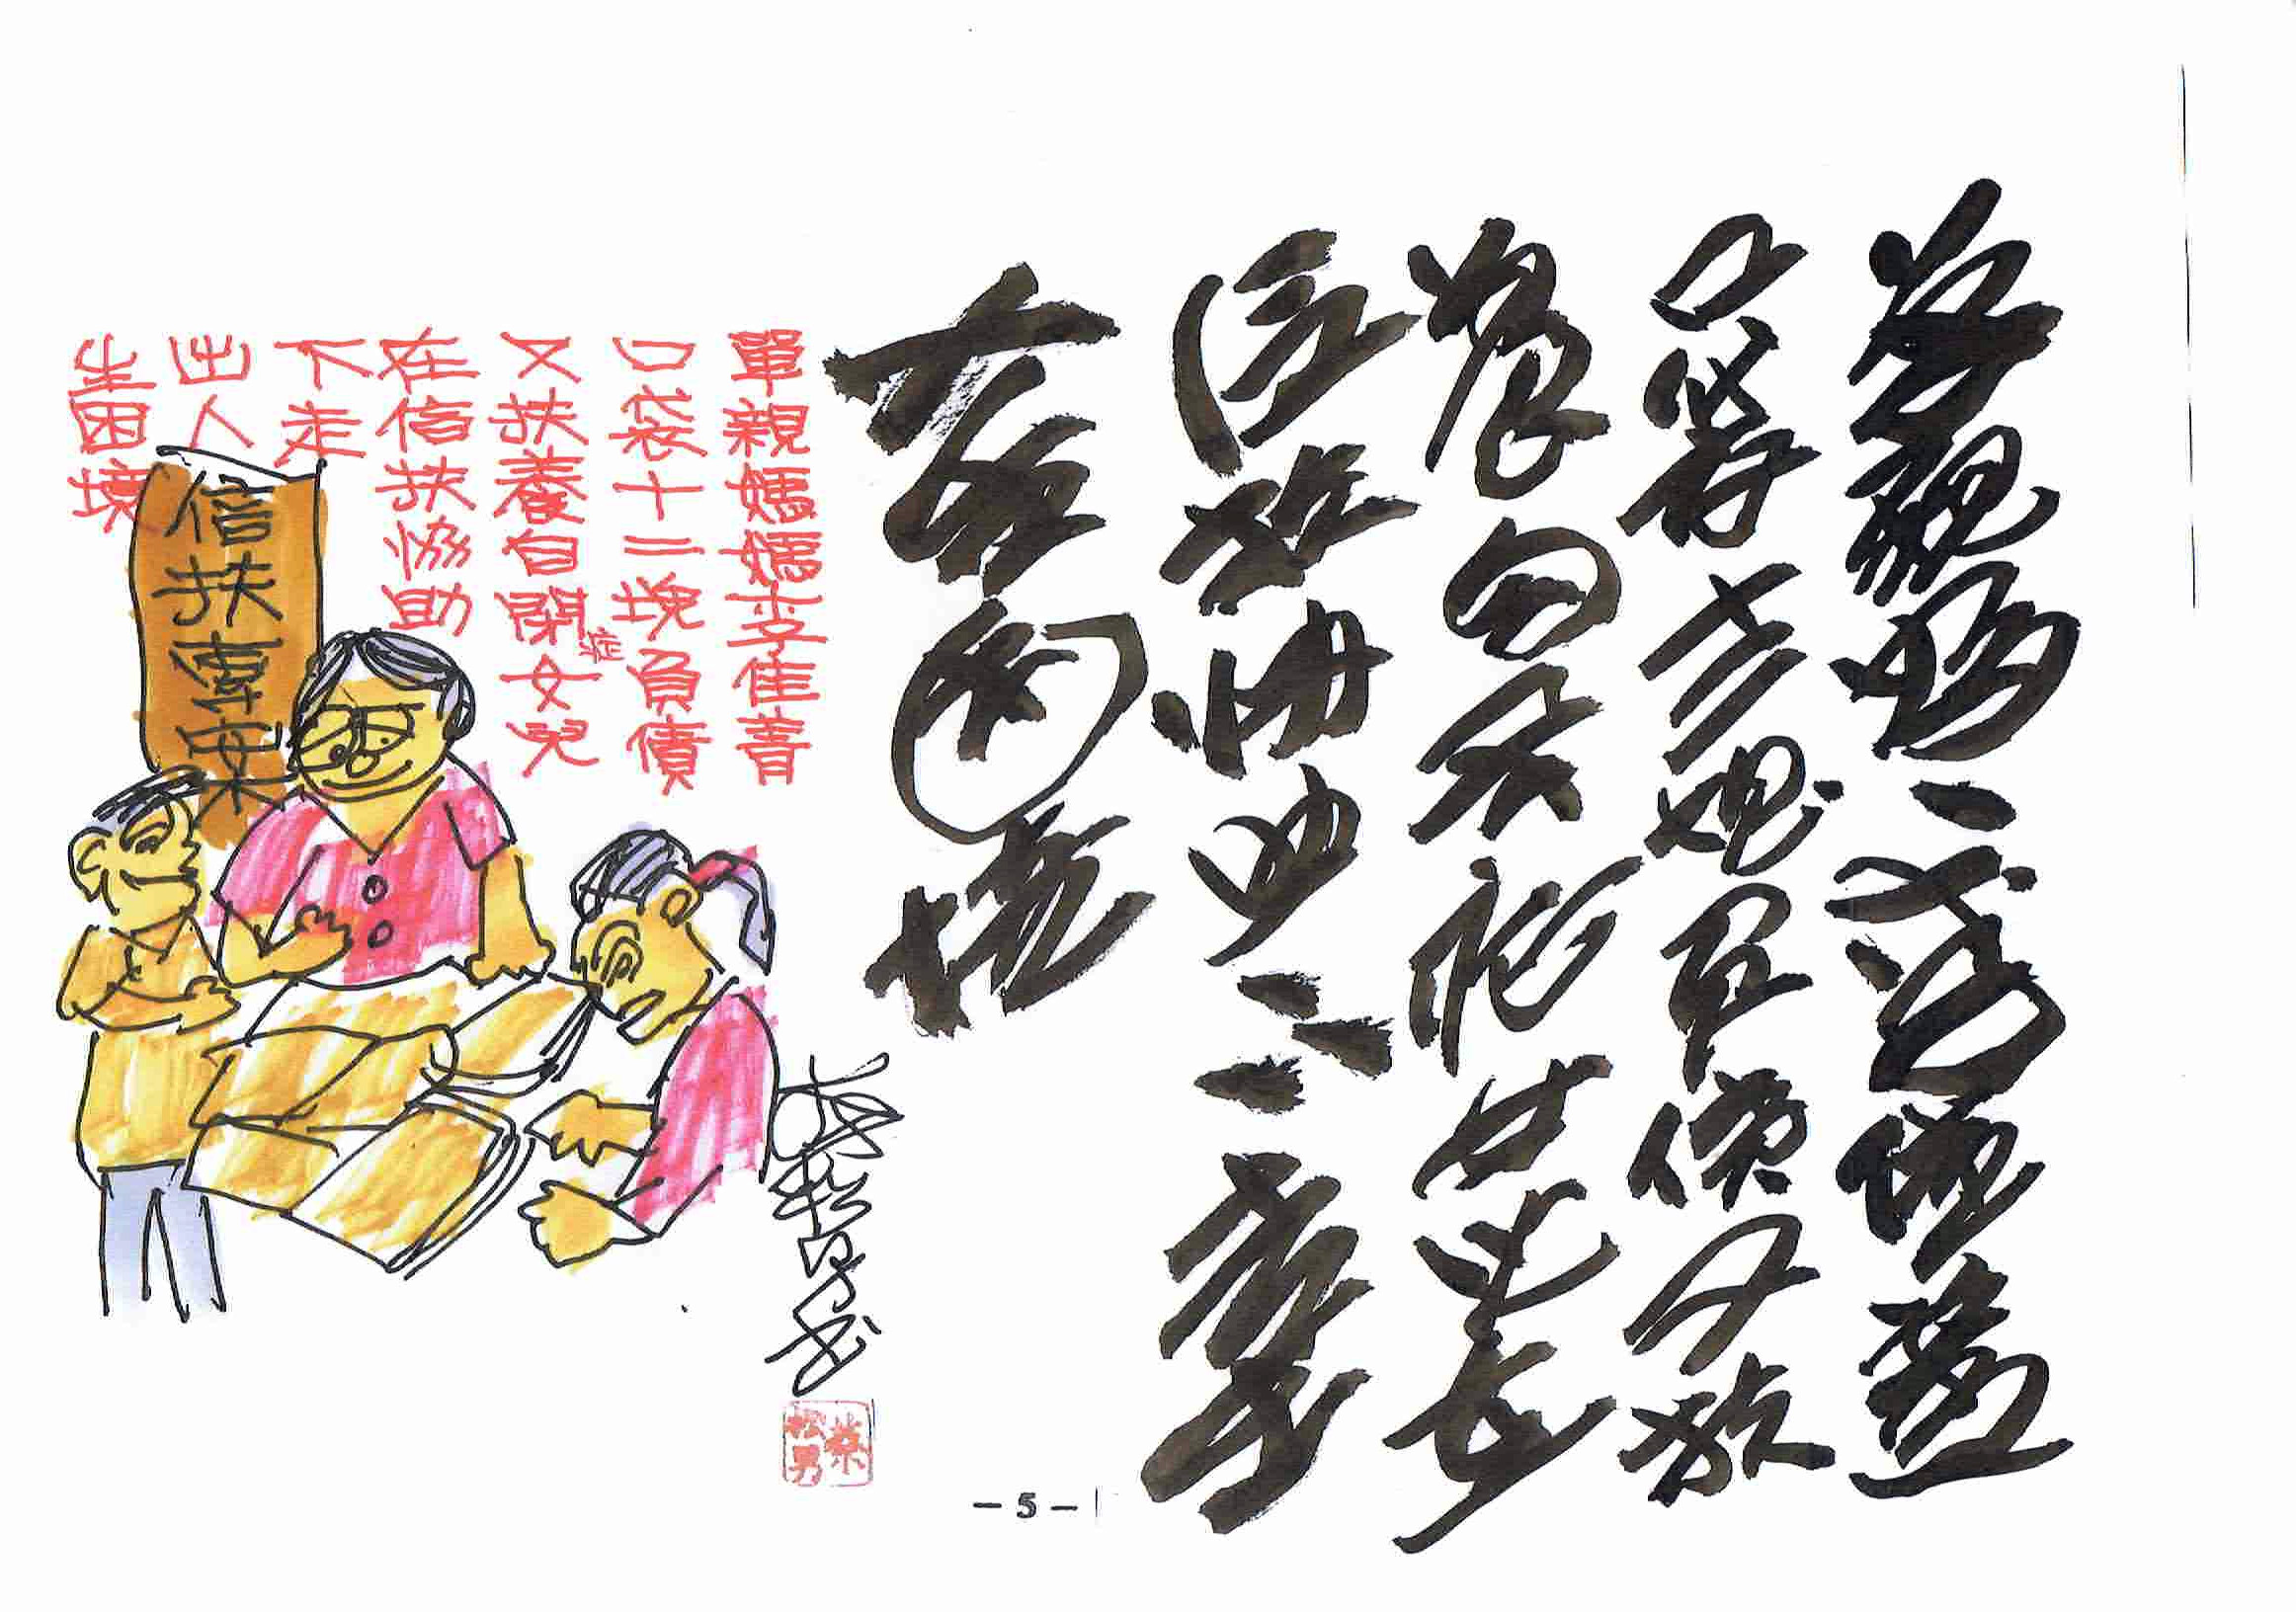 單親媽〻李佳菁
口袋十二塊負債又扶
養自閉症女兒在
信扶協助下走
出人生困境
單親媽媽李佳菁
口袋十二塊負債
又扶養自閉症女兒
在信扶協助
下走
出人
生困境
信扶專案
蔡松男
- 5 -